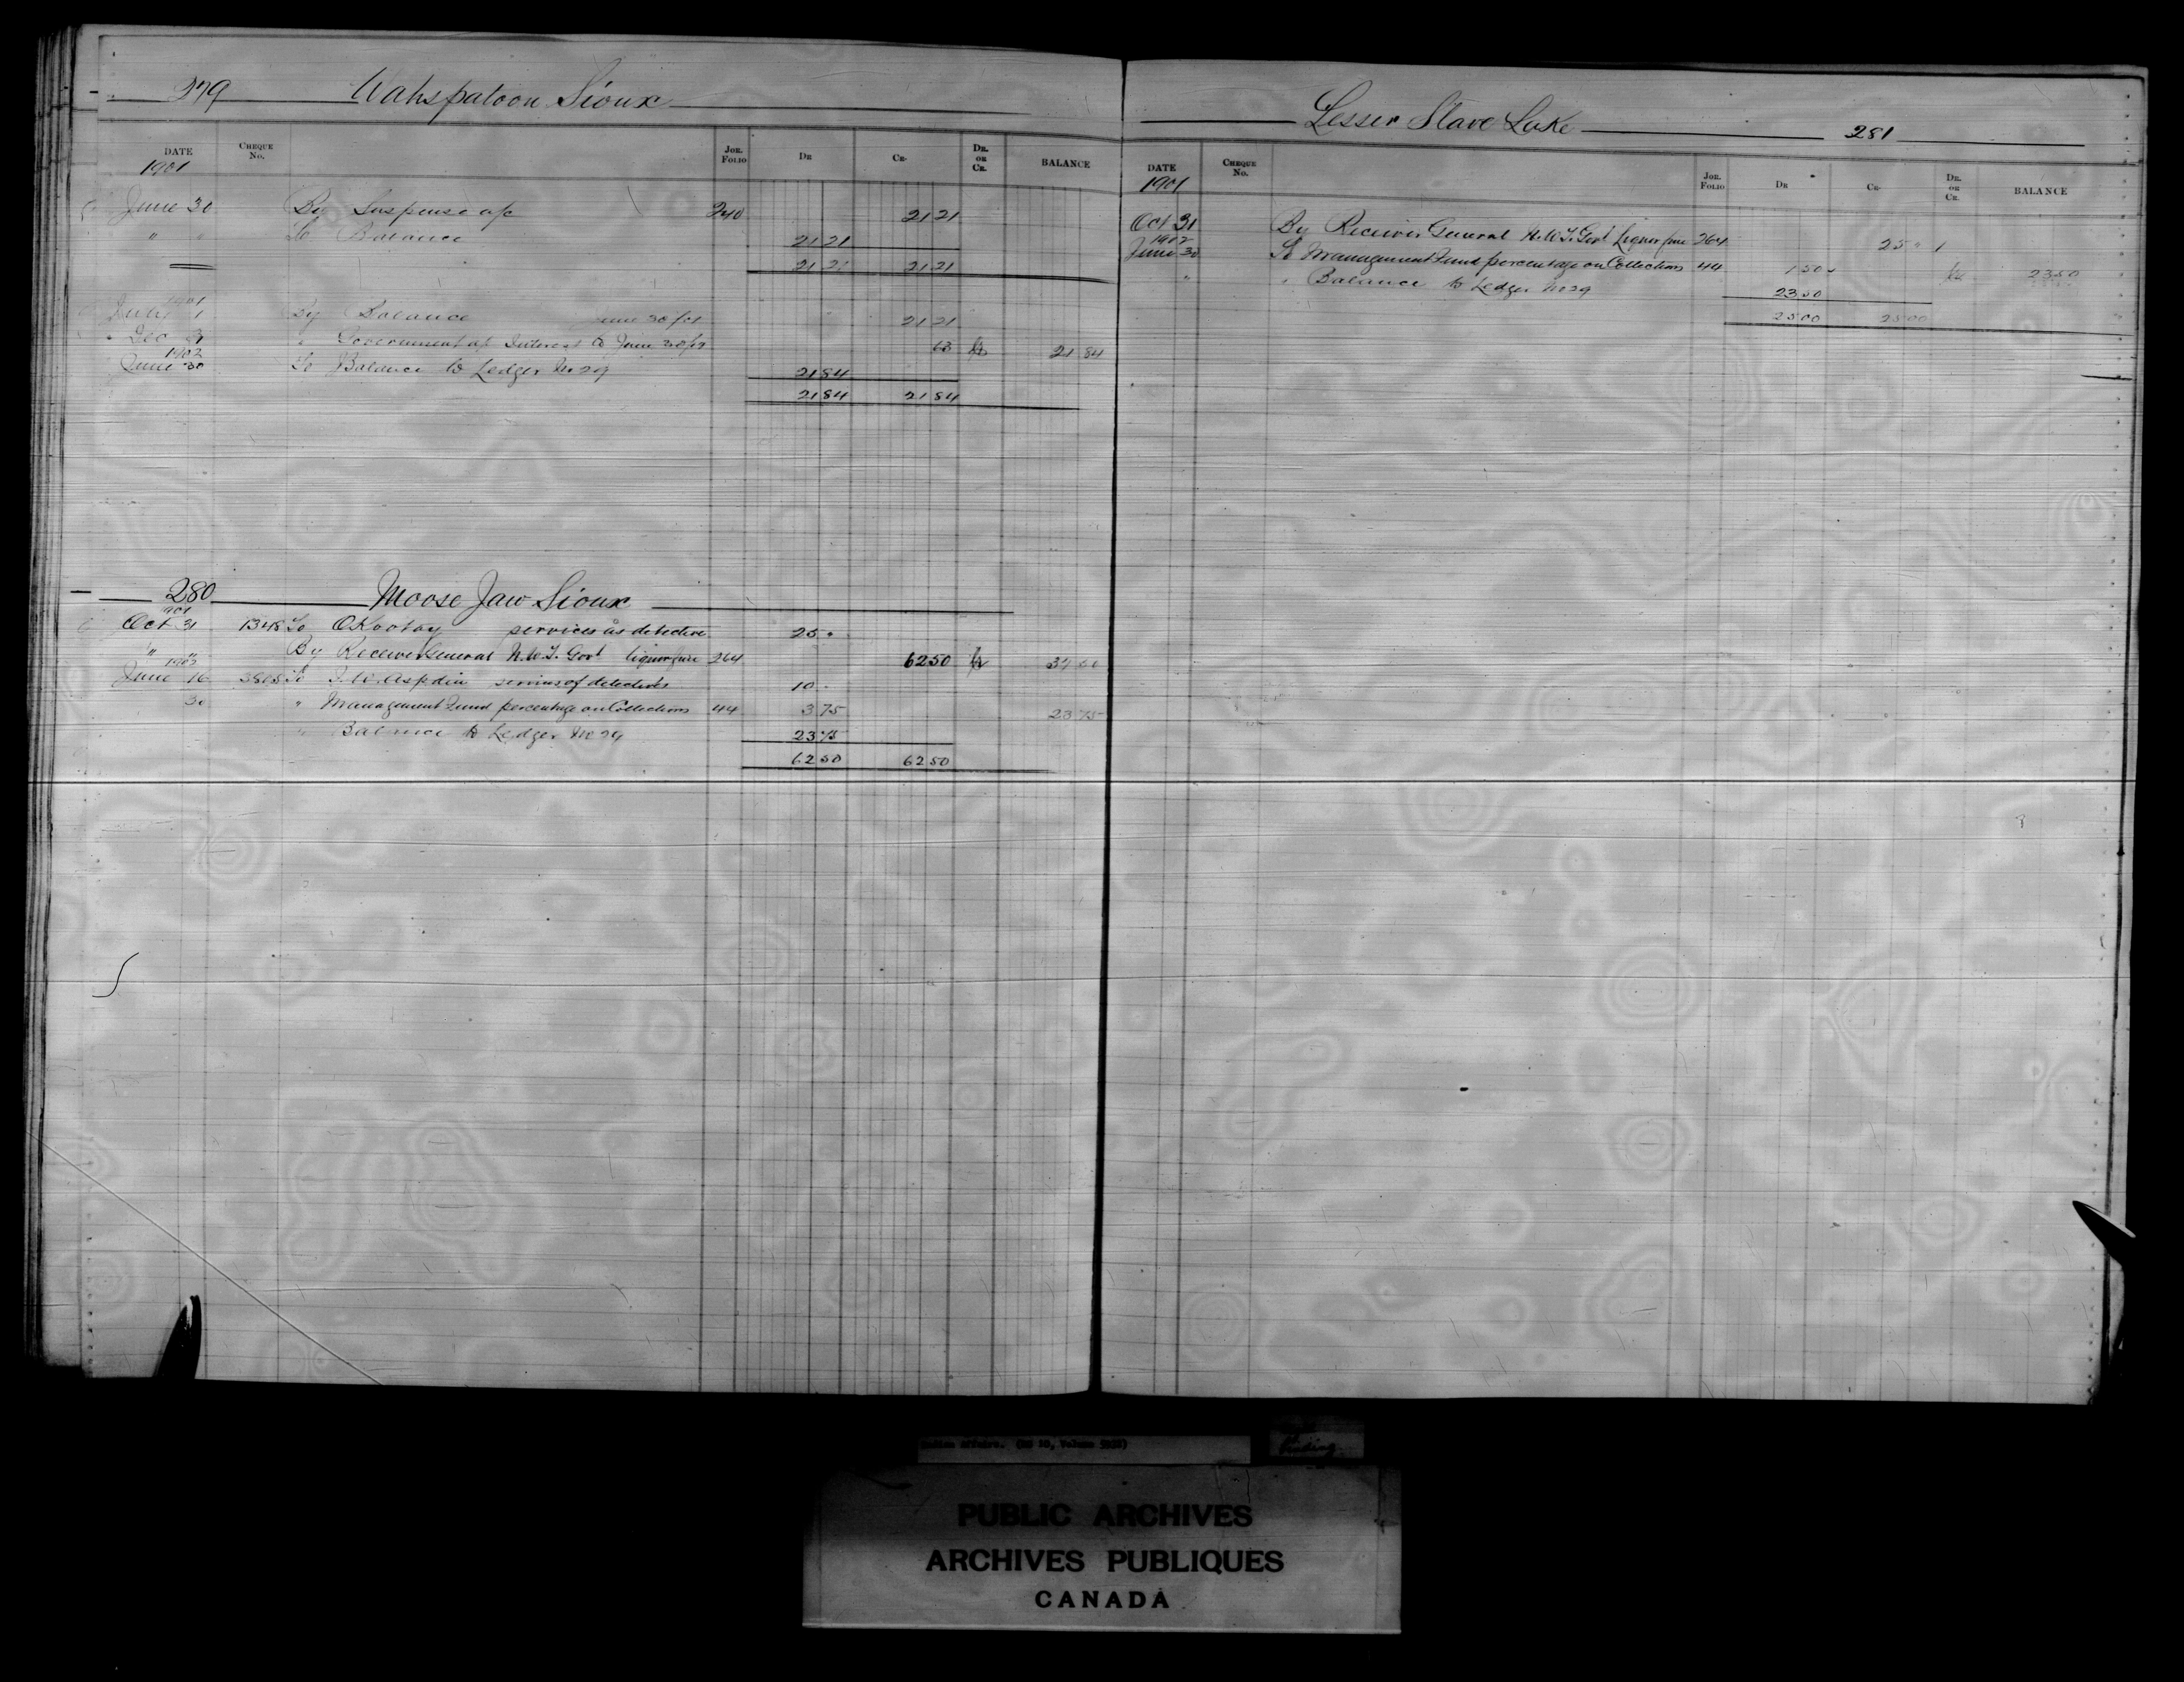 279 Wahspatoon Sioux
DATE CHEQUE No. JOR. FOLIO DR CR. DR. OR CR. BALANCE
1901
June 30 By Suspense a/c 240 21 21
" " To Balance 21 21
21 21 21 21
1901
July 1 By Balance June 30/01 21 21
Dec 31 " Government a/c Interest to June 30/02 63 Cr 21 84
1902
June 30 To Balance to Ledger No 29 21 84
21 84 21 84
280 Moose Jaw Sioux
1901
Oct 31 1348 To services as detective 25 "
" " By Receiver General N.W.T. Govt liquor fine 264 62 50 Cr 37 50
1902
June 16 To J.W. Aspdin services of detectives 10 "
30 " Management Fund percentage on Collections 44 3 75 23 75
" Balance to Ledger No 29 23 75
62 50 62 50
Lesser Slave Lake 281
DATE CHEQUE No. JOR. FOLIO DR CR. DR. OR CR. BALANCE
1901
Oct 31 By Receiver General N.W.T. Govt liquor fine 264 25 "
1902
June 30 To Management Fund percentage on Collections 44 1 50 Cr 23 50
" " Balance to Ledger No 29 23 50
25 00 25 00
Indian Affairs. (RG 10, Volume
binding
PUBLIC ARCHIVES
ARCHIVES PUBLIQUES
CANADA